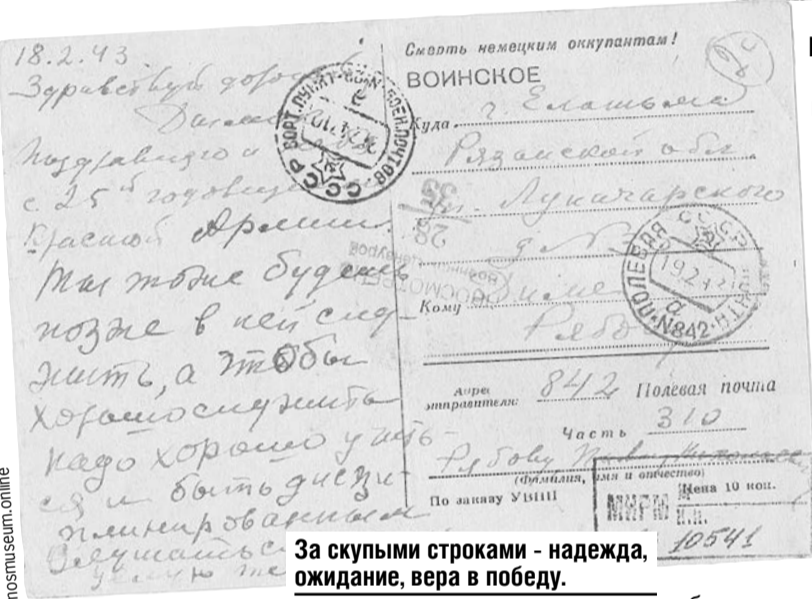 18.2.43.
Здравствуй
Дима
Поздравляю
с 25й годовщи
Красной Армии.
Ты тоже будешь
позже в ней слу-
жить, а чтобы
хорошо служить
надо хорошо учить-
ся и быть дисци-
плинированным
Слушаться
целую
Смерть немецким оккупантам!
ВОИНСКОЕ
Куда г. Елатьма
Рязанской обл.
ул. Луначарского
д №
Кому Диме
Рябо
Адрес отправителя: 842 Полевая почта
Часть 310
Рябову
(Фамилия, имя и отчество)
По заказу УВПП
Цена 10 коп.
МИРМ
10541
СССР
ПОЛЕВАЯ ПОЧТА
N842
19.2.43
ПРОСМОТРЕНО
Военной Цензурой
За скупыми строками - надежда,
ожидание, вера в победу.
nosmuseum.online